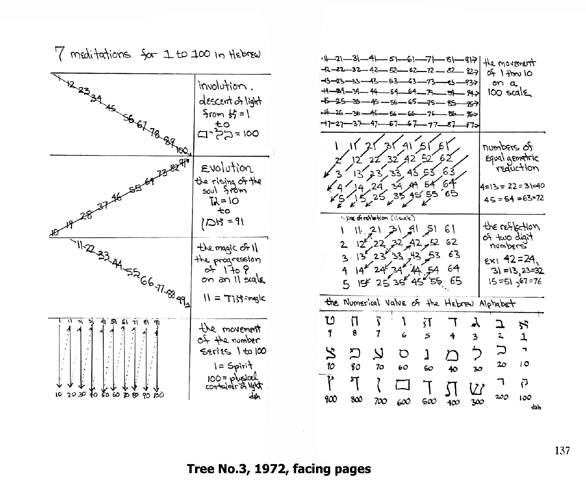 7 meditations for 1 to 100 in Hebrew
1 12 23 34 45 56 67 78 89 100
involution.
descent of light
from א=1
to
= 100
10 19 28 37 46 55 64 73 82 91
Evolution
the rising of the
soul from
= 10
to
= 91
11-22 33 44 55 66-77-88-99
the magic of 11
the progression
of 1 to 9
on an 11 scale
11 = =magic
1 11 21 31 41 51 61 71 81 91
10 20 30 40 50 60 70 80 90 100
the movement
of the number
series 1 to 100
1 = Spirit
100 = physical
container of light
dah
11-21-31-41-51-61-71-81-91
12-22-32-42-52-62-72-82-92
13-23-33-43-53-63-73-83-93
14-24-34-44-54-64-74-84-94
15-25-35-45-55-65-75-85-95
16-26-36-46-56-66-76-86-96
17-27-37-47-67-77-87-97
the movement
of 1 thru 10
on a
100 scale
1 11 21 31 41 51 61
2 12 22 32 42 52 62
3 13 23 33 43 53 63
4 14 24 34 44 54 64
5 15 25 35 45 55 65
numbers of
equal gemetric
reduction
4=13=22=31=40
45=54=63=72
line of reflection (11 scale)
1 11 21 31 41 51 61
2 12 22 32 42 52 62
3 13 23 33 43 53 63
4 14 24 34 44 54 64
5 15 25 35 45 55 65
the reflection
of two digit
numbers
ex: 42=24,
31=13, 23=32
15=51, 67=76
the Numerical Value of the Hebrew Alphabet
ט ח ז ו ה ד ג ב א
9 8 7 6 5 4 3 2 1
צ פ ע ס נ מ ל כ י
90 80 70 60 50 40 30 20 10
ץ ף ן ם ך ת ש ר ק
900 800 700 600 500 400 300 200 100
dah
137
Tree No.3, 1972, facing pages